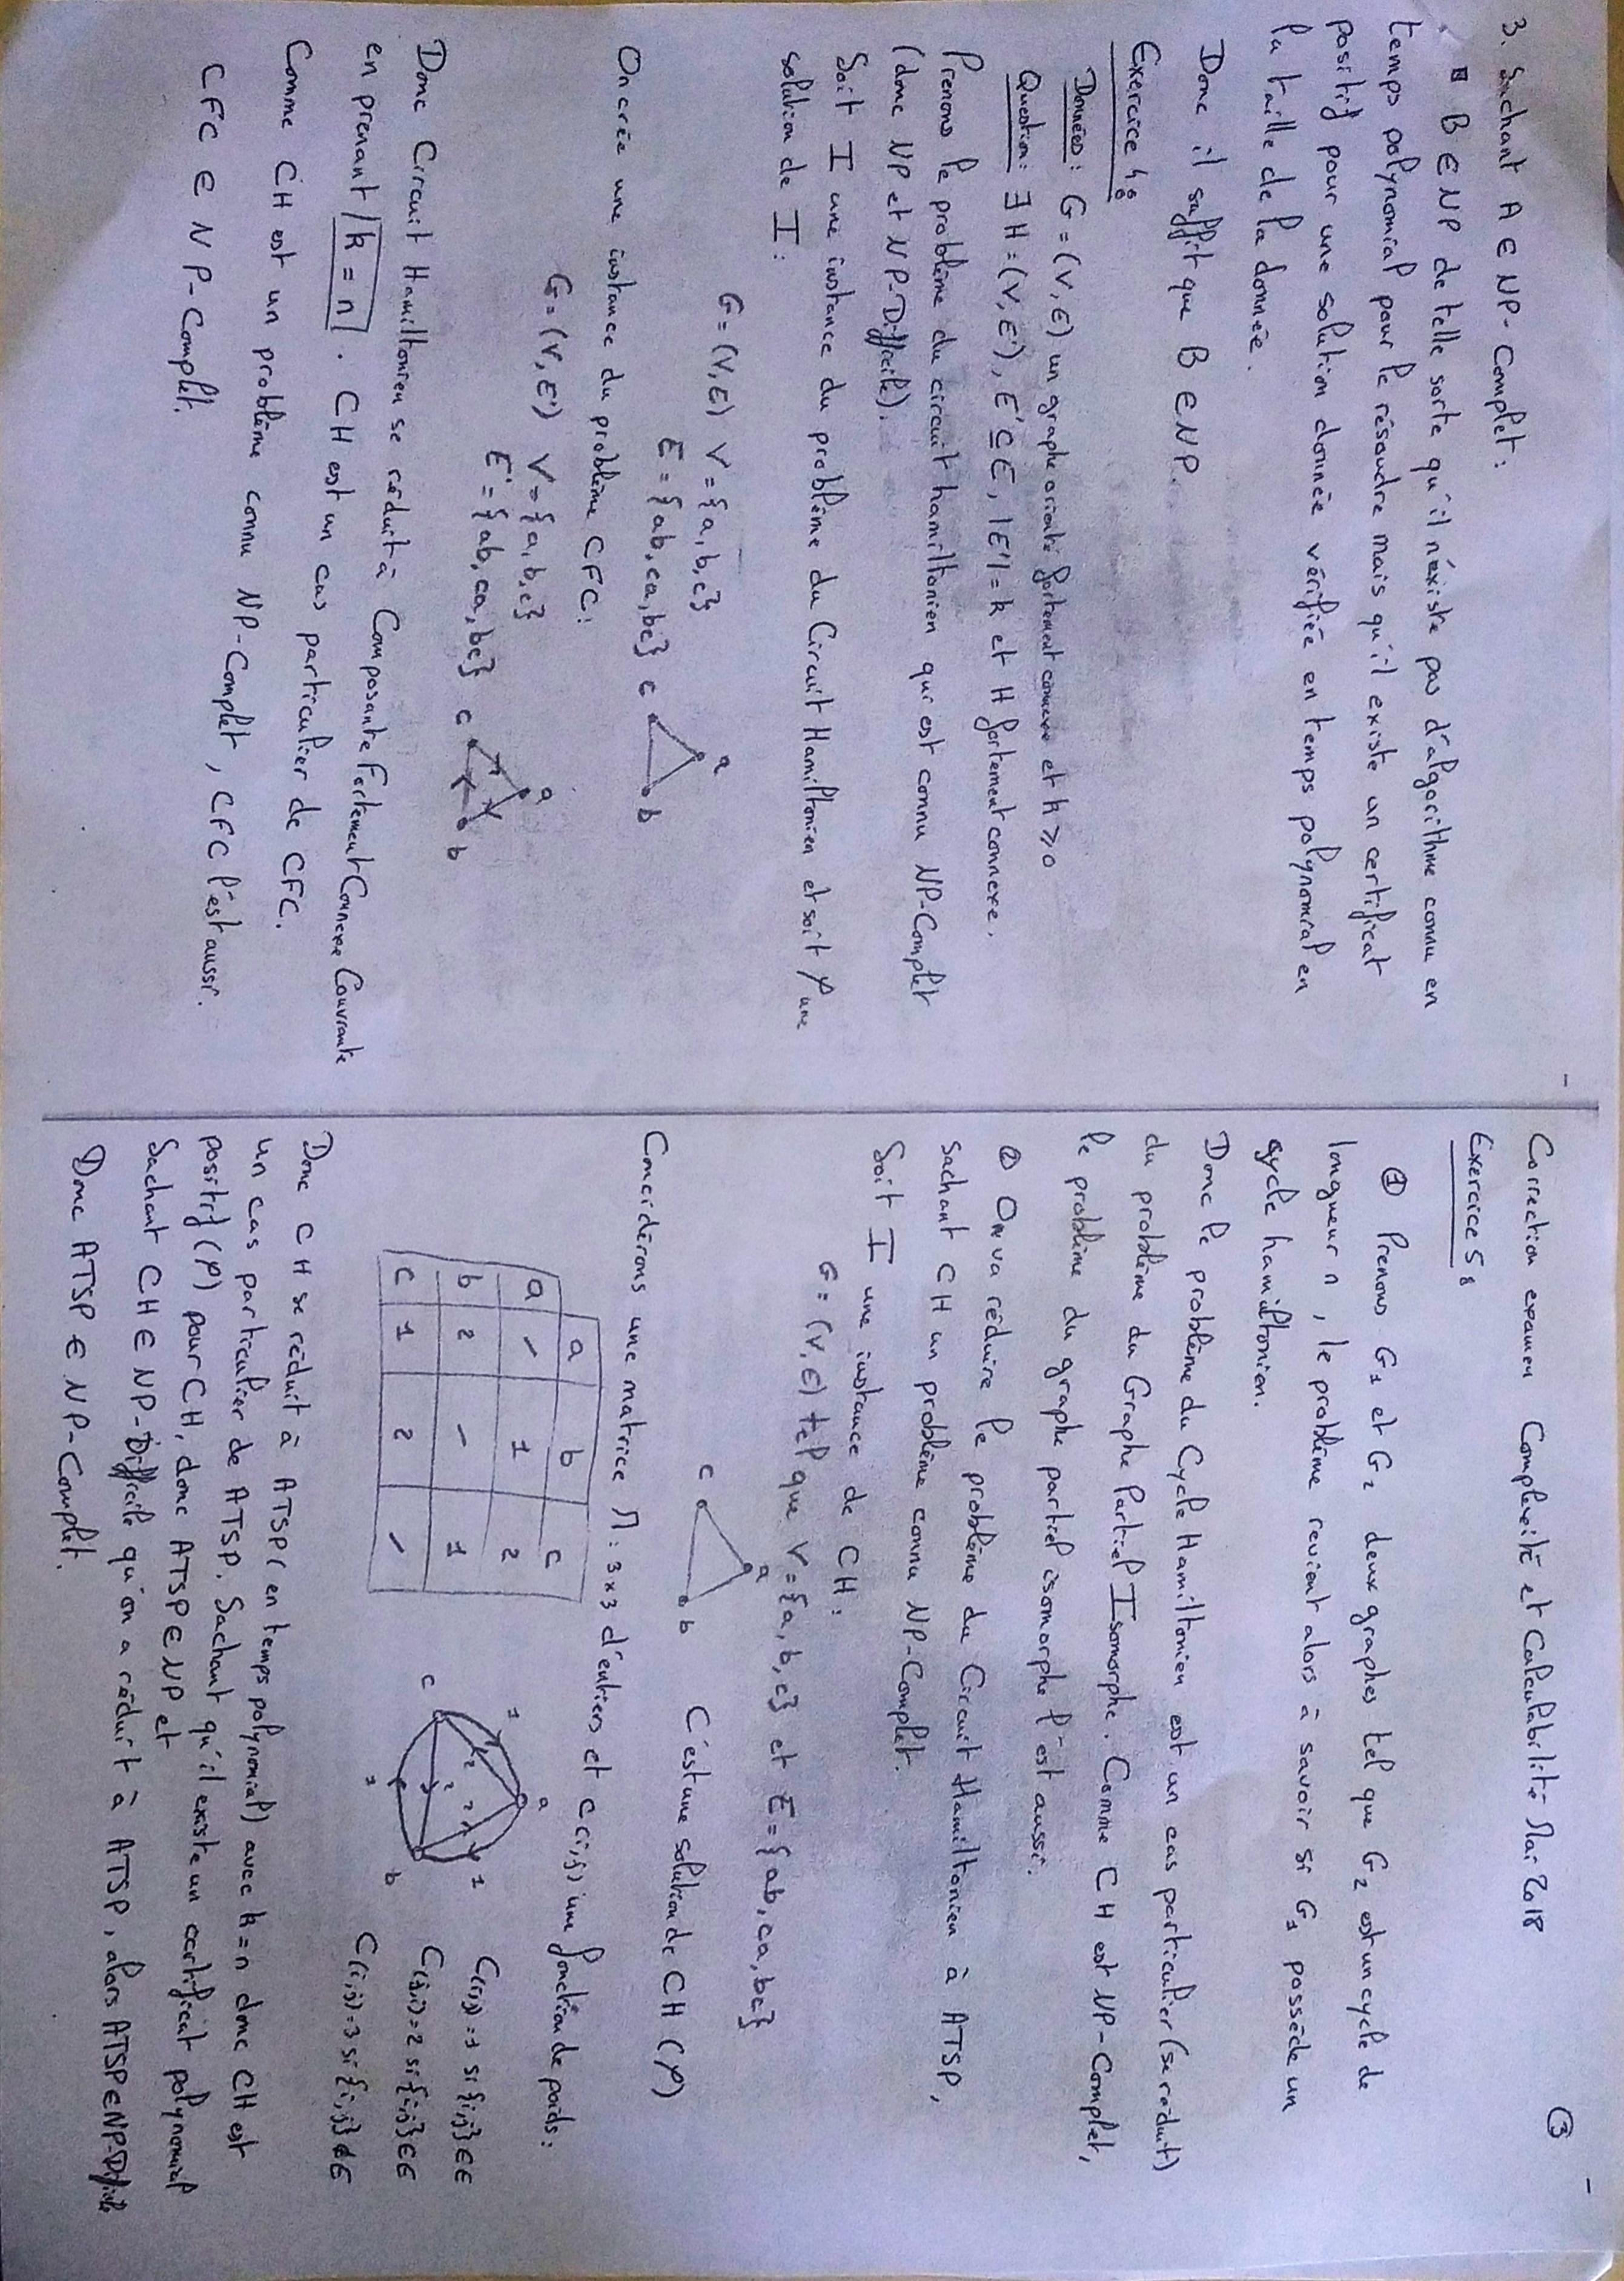 3. Sachant A ∈ NP-Complet :
▪ B ∈ NP de telle sorte qu'il n'éxiste pas d'algorithme connu en
temps polynomial pour le résoudre mais qu'il existe un certificat
positif pour une solution donnée vérifiée en temps polynomial en
la taille de la donnée.
Donc il suffit que B ∈ NP.
Exercice 4 :
Données : G = (V, E) un graphe orienté fortement connexe et k ⩾ 0
Question : ∃ H = (V, E'), E' ⊆ E, |E'| = k et H fortement connexe.
Prenons le problème du circuit hamiltonien qui est connu NP-Complet
(donc NP et NP-Difficile).
Soit I une instance du problème du Circuit Hamiltonien et soit φ une
solution de I :
G = (V, E) V = {a, b, c}
E = {ab, ca, bc}
a
c
b
On crée une instance du problème CFC :
G = (V, E') V = {a, b, c}
E' = {ab, ca, bc}
a
c
b
Donc Circuit Hamiltonien se réduit à Composante Fortement Connexe Couvrante
en prenant |k = n| . CH est un cas particulier de CFC.
Comme CH est un problème connu NP-Complet, CFC l'est aussi.
CFC ∈ NP-Complet.
Correction examen Complexité et Calculabilité Mai 2018
③
Exercice 5 :
① Prenons G1 et G2 deux graphes tel que G2 est un cycle de
longueur n, le problème revient alors à savoir si G1 possède un
cycle hamiltonien.
Donc le problème du Cycle Hamiltonien est un cas particulier (se réduit)
du problème du Graphe Partiel Isomorphe. Comme CH est NP-Complet,
le problème du graphe partiel isomorphe l'est aussi.
② On va réduire le problème du Circuit Hamiltonien à ATSP,
sachant CH un problème connu NP-Complet.
Soit I une instance de CH :
G = (V, E) tel que V = {a, b, c} et E = {ab, ca, bc}
a
c
b
C'est une solution de CH (φ)
Concidérons une matrice M : 3x3 d'entiers et c(i,j) une fonction de poids :
a b c
a / 1 2
b 2 / 1
c 1 2 /
a
1
1
2
2
2
c
b
1
C(i,j) = 1 si {i,j} ∈ E
C(j,i) = 2 si {i,j} ∈ E
C(i,j) = 3 si {i,j} ∉ E
Donc CH se réduit à ATSP (en temps polynomial) avec k = n donc CH est
un cas particulier de ATSP. Sachant qu'il existe un certificat polynomial
positif (φ) pour CH, donc ATSP ∈ NP et
Sachant CH ∈ NP-Difficile qu'on a réduit à ATSP, alors ATSP ∈ NP-Difficile
Donc ATSP ∈ NP-Complet.